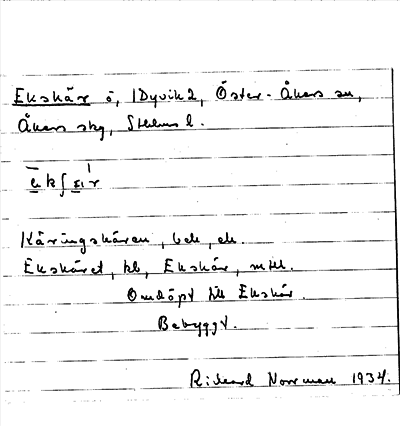 Ekskär ö, 1 Dyvik 2, Öster-Åkers sn,
Åkers skg, Sthlms l.
Käringskären, bek, ek.
Ekskäret, kb, Ekskär, mtll.
Omdöpt till Ekskär.
Bebyggt.
Rickard Norrman 1934.